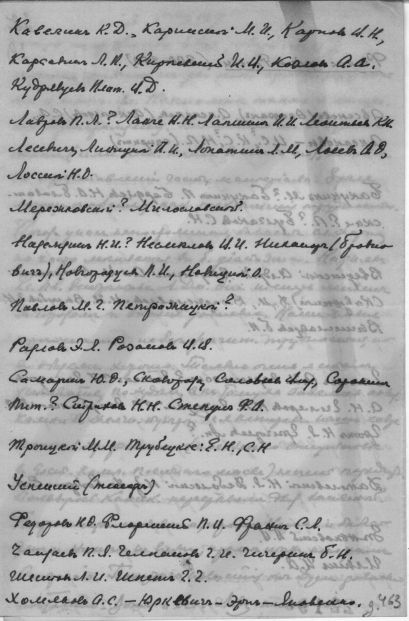 Кавелинъ К.Д., Каринский М.И., Карповъ Ѳ.Н.,
Карсавинъ Л.П., Киреевский И.И., Козловъ А.А.
Кудрявцев Плат. И.Д.
Лавров П.Л.? Ланге Н.Н. Лапшинъ И.И. Леонтьев К.Н.
Лесевич, Лопатин Л.М., Лосев А.Ф.,
Лосский Н.О.
Мережковский? Милославский.
И.И. Несмелов В.И. Никанор (Бровко
вич), Новгородцев П.И., Новицкий О.
Павлов М.Г. Петрожицкий?
Радлов Э.Л. Розанов В.В.
Самарин Ю.Ф., Сковорода, Соловьев Влад., Сорокин
Пит.? Страхов Н.Н. Степун Ф.А.
Троицкий М.М. Трубецкие: Е.Н., С.Н
Успенский
Федоров Н.Ф. Флоренский П.И. Франк С.Л.
Чаадаев П.Я. Челпанов Г.И. Чичерин Б.Н.
Шестов Л.И. Шпет Г.Г.
Хомяков А.С. – Юркевич – Эрн – Яковенко.
д. 463